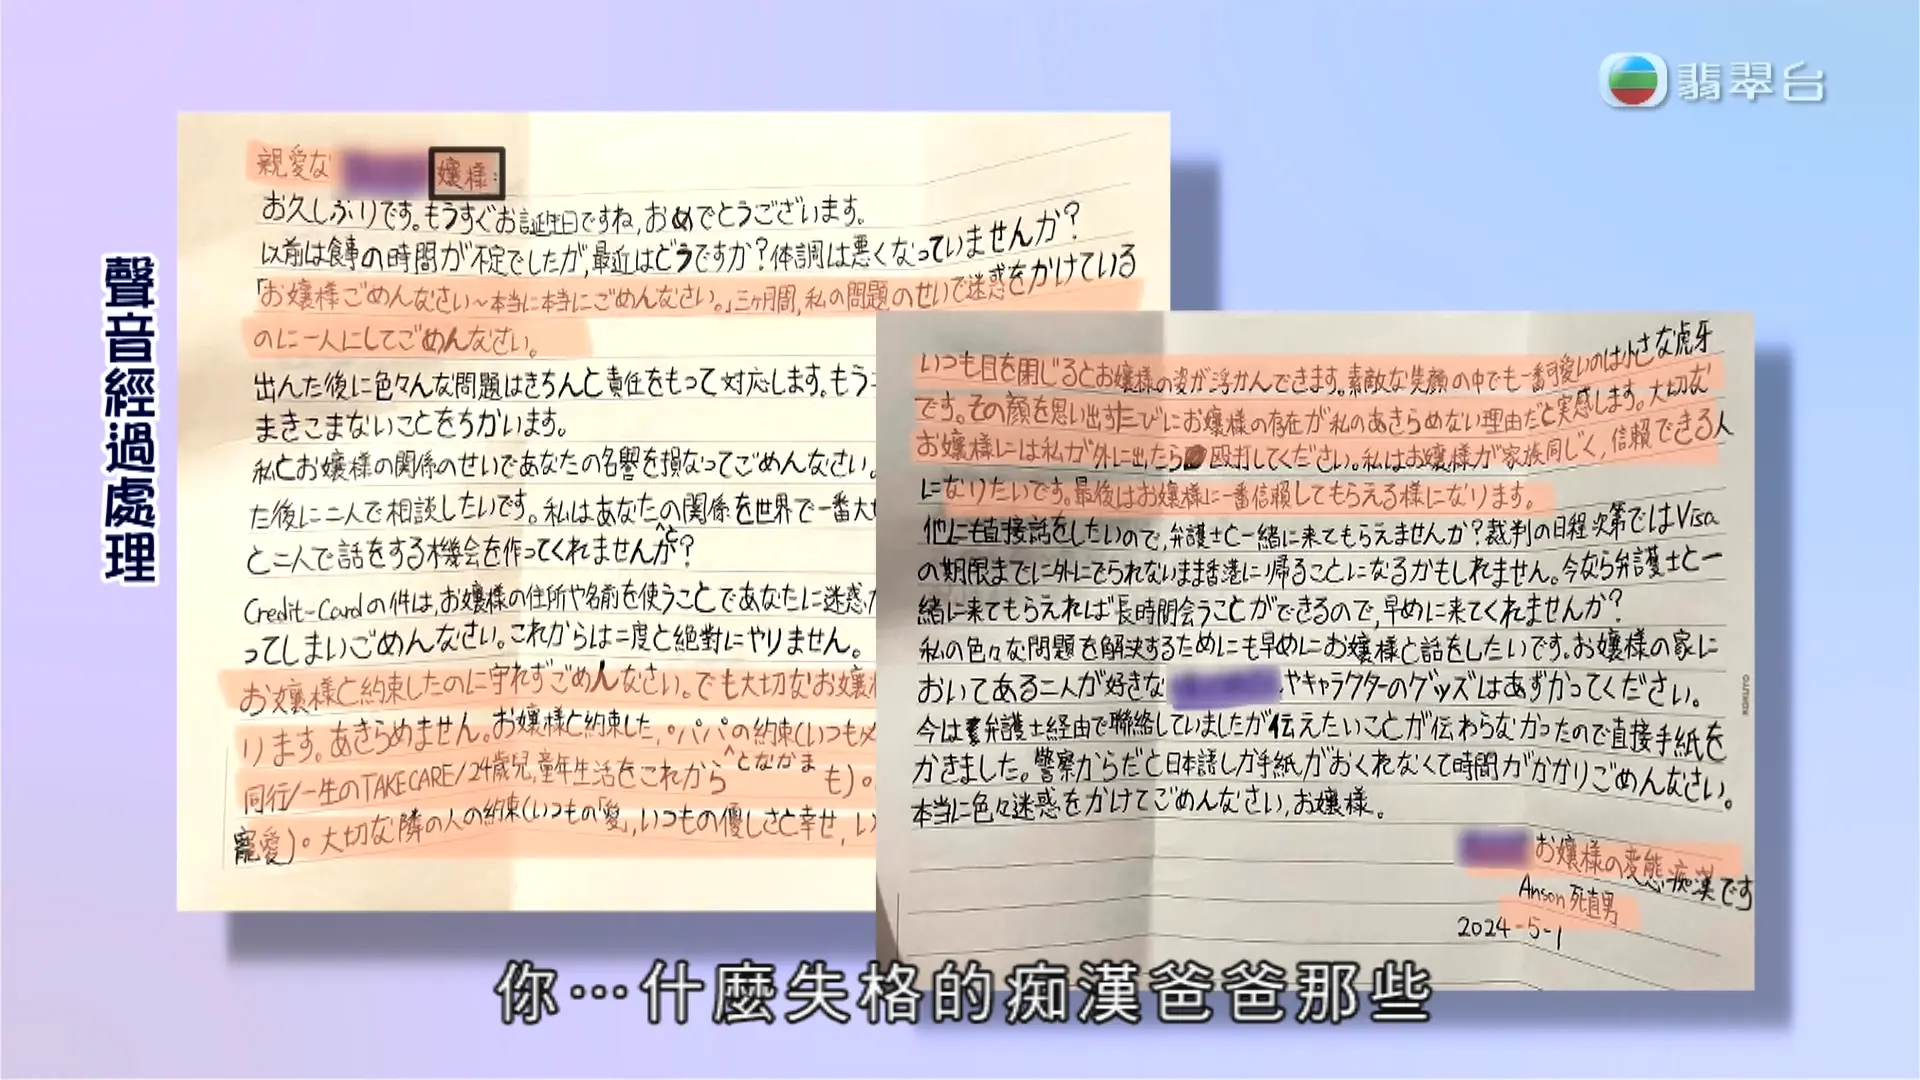 翡翠台
聲音經過處理
親愛な
嬢様:
お久しぶりです。もうすぐお誕生日ですね,おめでとうございます。
以前は食事の時間が不定でしたが,最近はどうですか?体調は悪くなっていませんか?
「お嬢様ごめんなさい~本当に本当にごめんなさい。」三ヶ月間,私の問題のせいで迷惑をかけている
のに一人にしてごめんなさい。
出んた後に色々んな問題はきちんと責任をもって対応します。もう
まきこまないことをちかいます。
私とお嬢様の関係のせいであなたの名誉を損なってごめんなさい。
た後に二人で相談したいです。私はあなたの関係を世界で一番大
と
と二人で話をする機会を作ってくれませんか?
Credit-Cardの件は,お嬢様の住所や名前を使うことであなたに迷惑
ってしまいごめんなさい。これからは二度と絶對にやりません。
お嬢様と約束したのに守れずごめんなさい。でも大切なお嬢様
ります。あきらめません。お嬢様と約束した,パパの約束(いつも
同行/一生のTAKECARE/24歲兒,童年生活をこれから となかま も)。
寵愛)。大切な隣の人の約束(いつもの「愛」,いつもの優しさと幸せ,い
いつも目を閉じるとお嬢様の姿が浮かんできます。素敵な笑顔の中でも一番可愛いのは小さな虎牙
です。その顔を思い出すたびにお嬢様の存在が私のあきらめない理由だと実感します。大切な
お嬢様には私が外に出たら殴打してください。私はお嬢様が家族同じく,信賴できる人
になりたいです。最後はお嬢様に一番信賴してもらえる様になります。
他にも直接話をしたいので,弁護士と一緒に来てもらえませんか?裁判の日程次第ではVisa
の期限までに外にでられないまま香港に帰ることになるかもしれません。今なら弁護士と一
緒に来てもらえれば長時間会うことができるので,早めに来てくれませんか?
私の色々な問題を解決するためにも早めにお嬢様と話をしたいです。お嬢様の家に
おいてある二人が好きな
やキャラクターのグッズはあずかってください。
今は弁護士経由で聯絡していましたが伝えたいことが伝わらなかったので直接手紙を
かきました。警察からだと日本語しか手紙がおくれなくて時間がかかりごめんなさい。
本当に色々迷惑をかけてごめんなさい,お嬢様。
お嬢様の変態痴漢です
Anson 死直男
2024-5-1
KOKUYO
你…什麼失格的痴漢爸爸那些